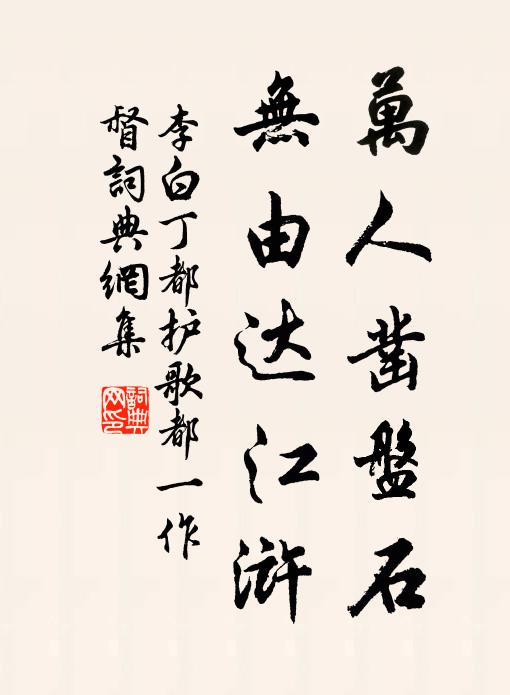 萬人凿盤石
無由达江浒
李白丁都护歌都一作
督詞典網集
詞典网印